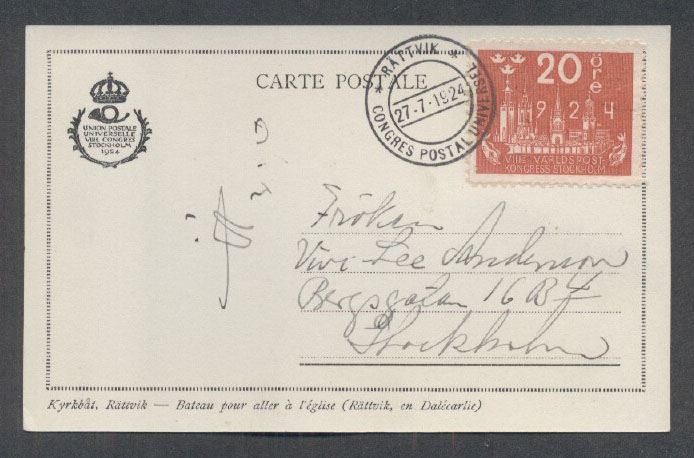 CARTE POSTALE
UNION POSTALE
UNIVERSELLE
VIIIE CONGRES
STOCKHOLM
1924
* RÄTTVIK *
27-7-1924
CONGRES POSTAL UNIVERSEL
20 öre
1924
VIIIE VÄRLDSPOST-
KONGRESS STOCKHOLM
Fröken
Vivi-Lee Anderson
Bergsgatan 16 B
Stockholm
Kyrkbåt, Rättvik — Bateau pour aller à l'église (Rättvik, en Dalécarlie)